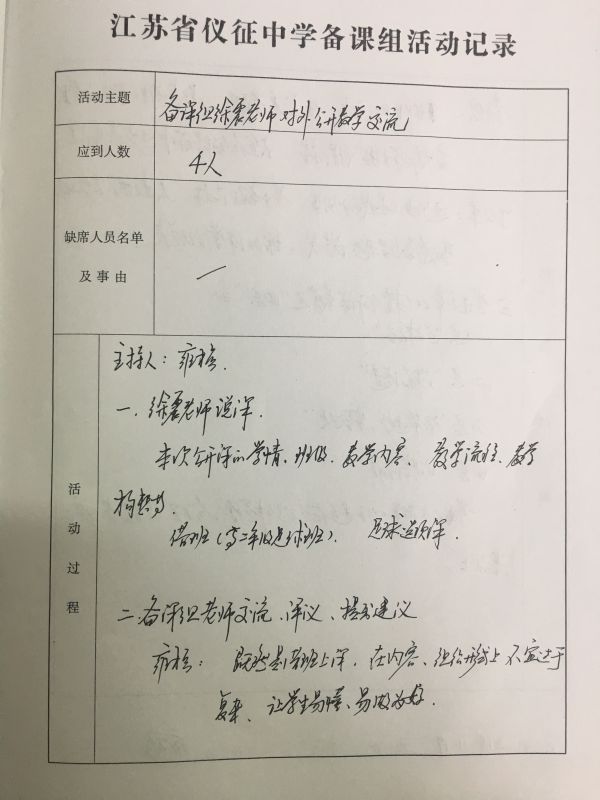 江苏省仪征中学备课组活动记录
活动主题
备课组徐磊老师对外公开教学交流
应到人数
4人
缺席人员名单
及事由
一
活动过程
主持人：
一、徐磊老师说课.
本次公开课的学情、班级、教学内容、教学流程、教学
构想等
借班（高二年级足球班）. 足球选项课.
二、备课组老师交流、评议、提出建议
既然是借班上课，在内容、组织形式上不宜过于
复杂、让学生易懂、易做为好.